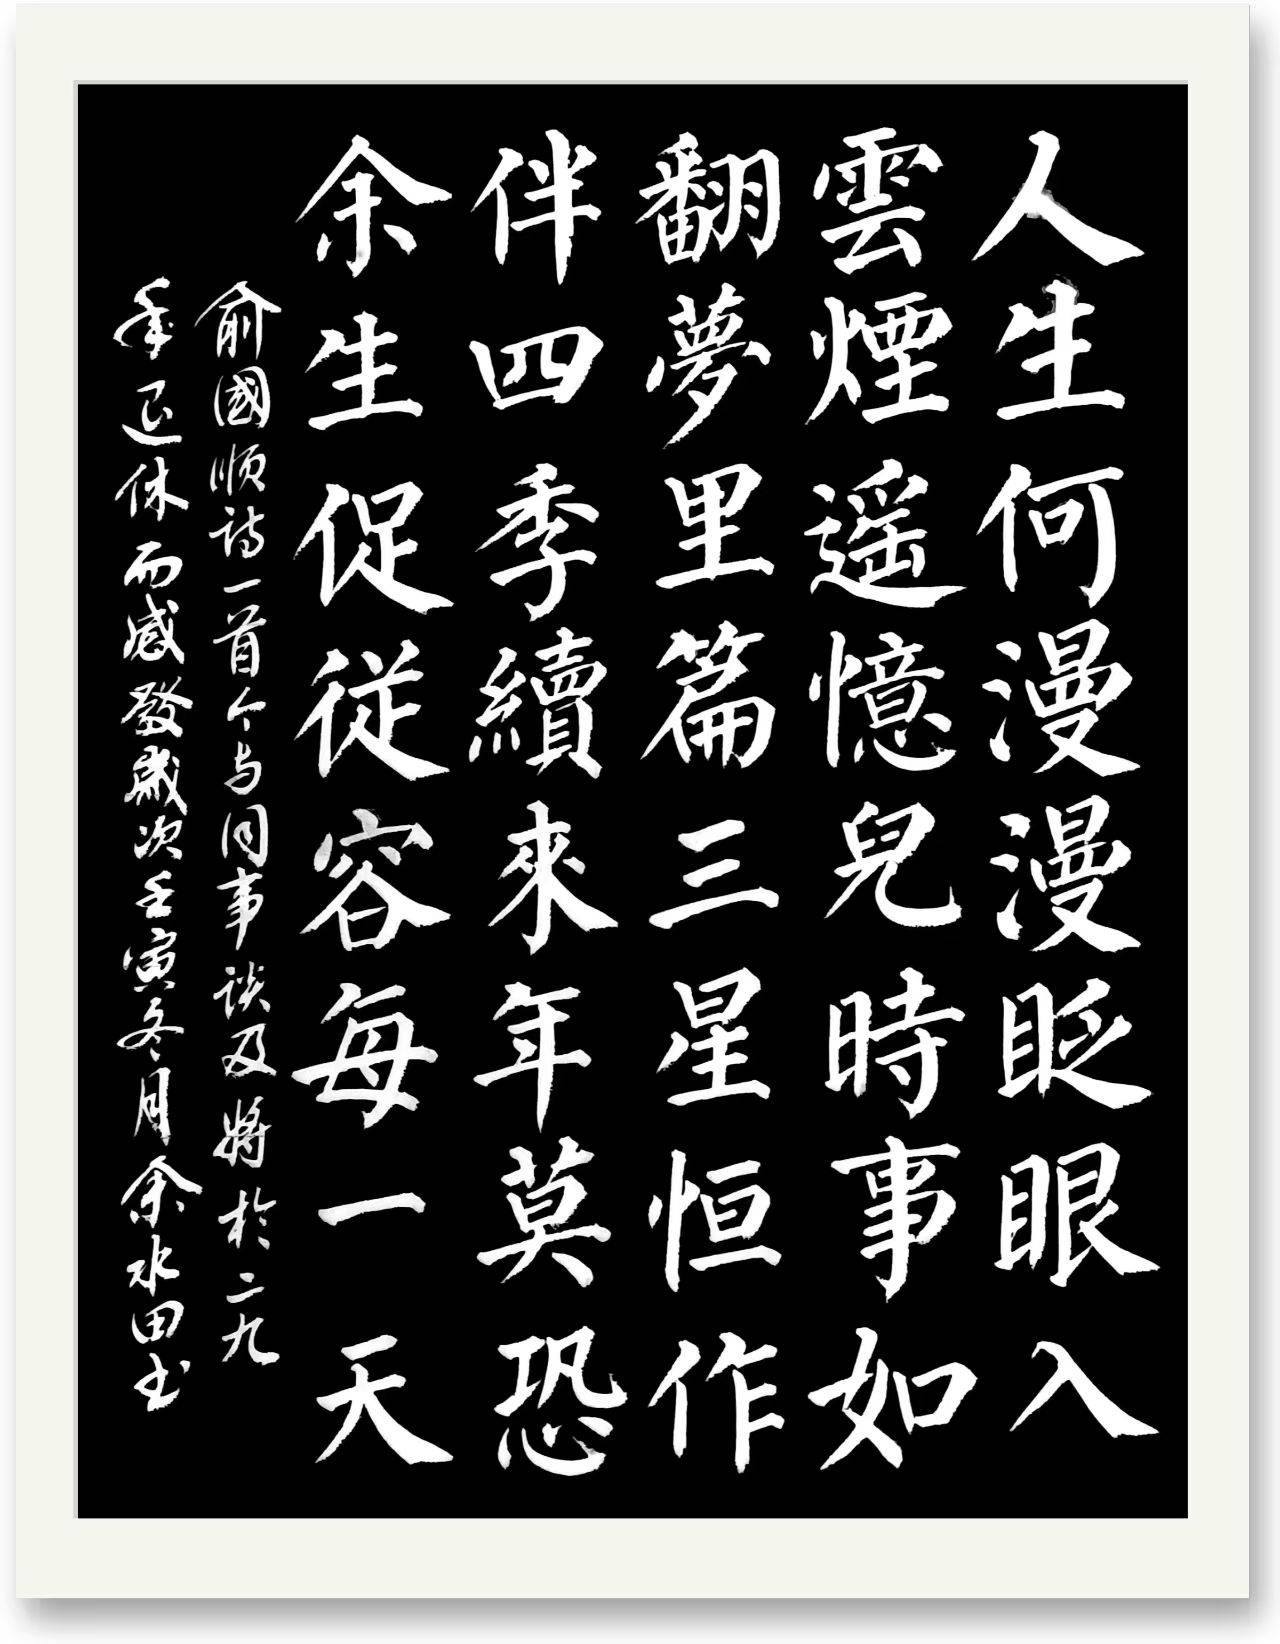 人生何漫漫眨眼入
雲煙遥憶兒時事如
翻夢里篇三星恒作
伴四季續來年莫恐
余生促従容每一天
俞國顺诗一首今与同事谈及將於二九
年退休而感發歲次壬寅冬月余水田书